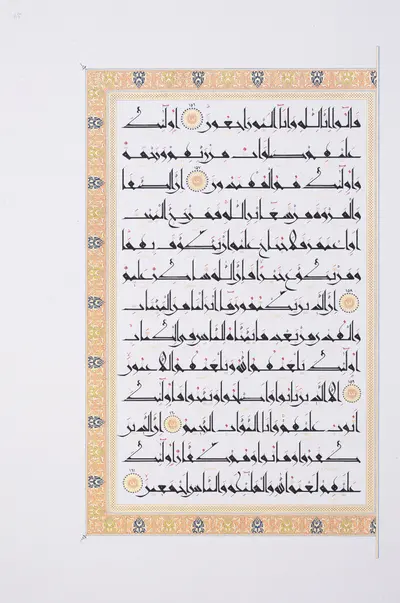 قالوا انا لله وانا اليه راجعون ١٥٦ اولئك
عليهم صلوات من ربهم ورحمة
واولئك هم المهتدون ١٥٧ ان الصفا
والمروة من شعائر الله فمن حج البيت
او اعتمر فلا جناح عليه ان يطوف بهما
ومن تطوع خيرا فان الله شاكر عليم
١٥٨ ان الذين يكتمون ما انزلنا من البينات
والهدى من بعد ما بيناه للناس في الكتاب
اولئك يلعنهم الله ويلعنهم اللاعنون
١٥٩ الا الذين تابوا واصلحوا وبينوا فاولئك
اتوب عليهم وانا التواب الرحيم ١٦٠ ان الذين
كفروا وماتوا وهم كفار اولئك
عليهم لعنة الله والملائكة والناس اجمعين ١٦١